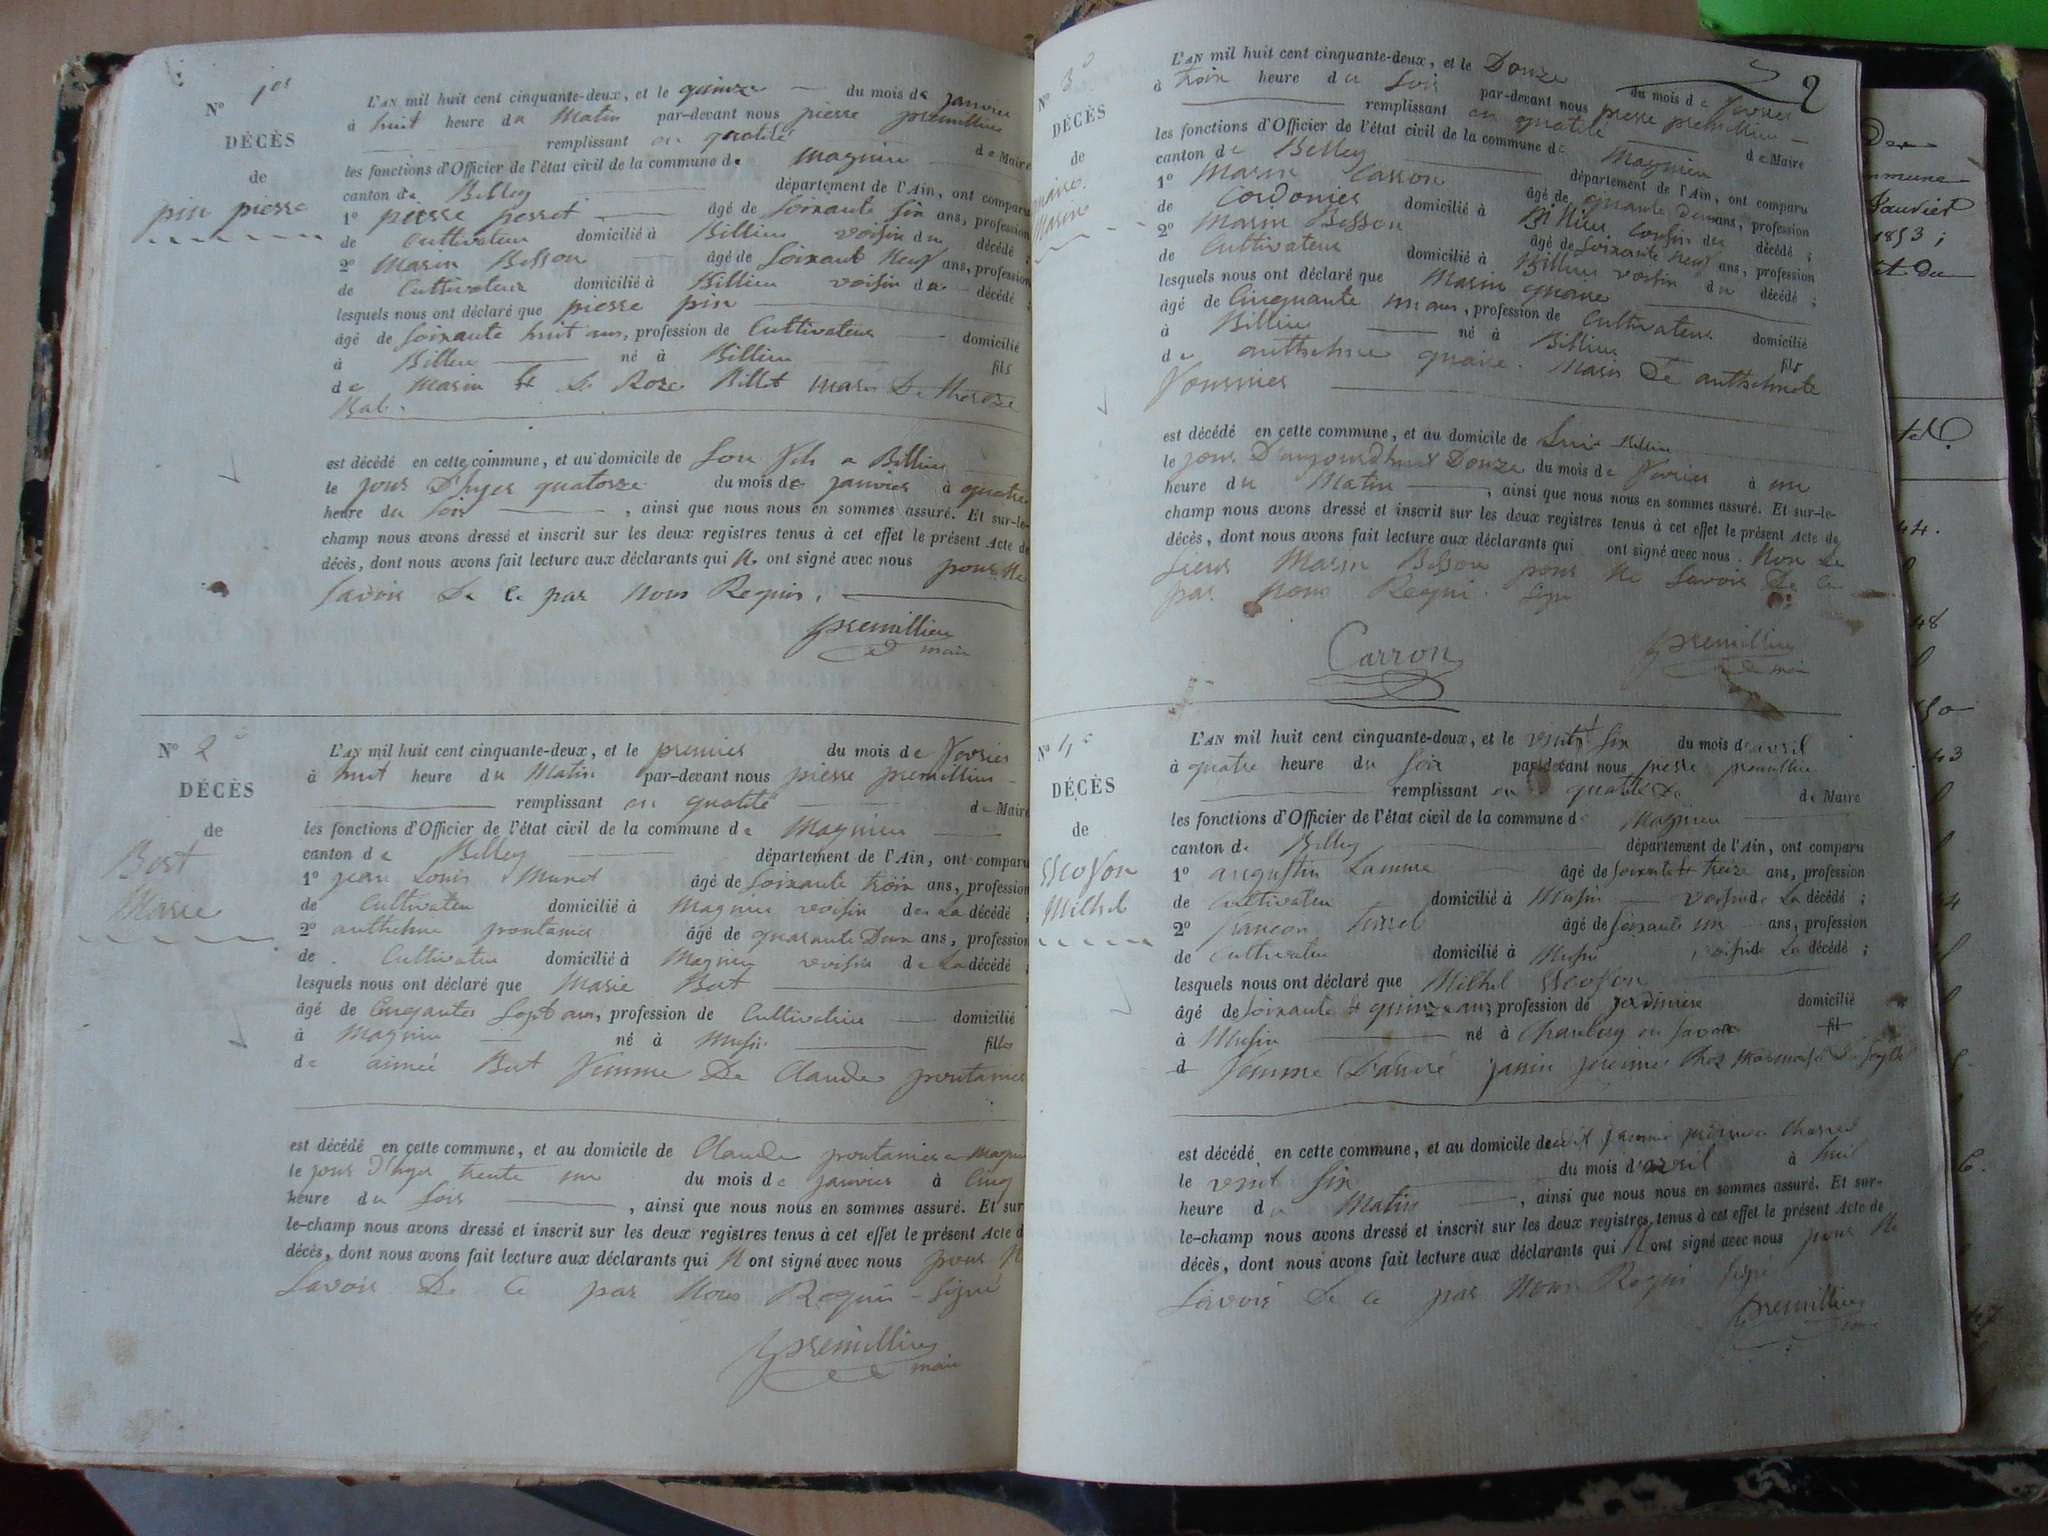 N° 1er
DÉCÈS
de
pin pierre
L'AN mil huit cent cinquante-deux, et le quinze du mois de janvier
à huit heure du Matin par-devant nous pierre premillieu
remplissant en qualité de Maire
les fonctions d'Officier de l'état civil de la commune de Magnieu
canton de Belley département de l'Ain, ont comparu
1° pierre perret âgé de Soixante Six ans, profession
de Cultivateur domicilié à Billieu voisin du décédé ;
2° Marin Besson âgé de Soixant Neuf ans, profession
de Cultivateur domicilié à Billieu voisin du décédé ;
lesquels nous ont déclaré que pierre pin
âgé de Soixante huit ans, profession de Cultivateur domicilié
à Billieu né à Billieu fils
de Marin Et De Roze Billet Maris De therese
Bal.
est décédé en cette commune, et au domicile de Son fils a Billieu
le jour D'hyer quatorze du mois de janvier à quatre
heure du Soir, ainsi que nous nous en sommes assuré. Et sur-le-
champ nous avons dressé et inscrit sur les deux registres tenus à cet effet le présent Acte de
décès, dont nous avons fait lecture aux déclarants qui N. ont signé avec nous pour Ne
Savoir De Ce par Nous Requis.
premillieu
maire
N° 2e
DÉCÈS
de
Bert
Marie
L'AN mil huit cent cinquante-deux, et le premier du mois de fevrier
à huit heure du Matin par-devant nous pierre premillieu
remplissant en qualité de Maire
les fonctions d'Officier de l'état civil de la commune de Magnieu
canton de Belley département de l'Ain, ont comparu
1° jean Louis Munet âgé de Soixante trois ans, profession
de Cultivateur domicilié à Magnieu voisin de La décédé ;
2° anthelme proutanier âgé de quarante Deux ans, profession
de Cultivateur domicilié à Magnieu voisin de La décédé ;
lesquels nous ont déclaré que Marie Bert
âgé de Cinquantes Sept ans, profession de Cultivatrice domicilié
à Magnieu né à Musin filles
de aimée Bert femme De Claude proutanier
est décédé en cette commune, et au domicile de Claude proutanier a Magnieu
le jour D'hyer trente un du mois de janvier à Cinq
heure du Soir, ainsi que nous nous en sommes assuré. Et sur
le-champ nous avons dressé et inscrit sur les deux registres tenus à cet effet le présent Acte d
décès, dont nous avons fait lecture aux déclarants qui N ont signé avec nous pour N
Savoir De Ce par Nous Requis - Signé
premillieu
maire
2
N° 3e
DÉCÈS
de
Marin
L'AN mil huit cent cinquante-deux, et le Douze du mois de fevrier
à trois heure du Soir par-devant nous pierre premillieu
remplissant en qualité de Maire
les fonctions d'Officier de l'état civil de la commune de Magnieu
canton de Belley département de l'Ain, ont comparu
1° Marin Carron âgé de quarante Deux ans, profession
de Cordonier domicilié à Billieu Cousin du décédé ;
2° Marin Besson âgé de Soixante Neuf ans, profession
de Cultivateur domicilié à Billieu voisin du décédé ;
lesquels nous ont déclaré que Marin quaire
âgé de Cinquante un ans, profession de Cultivateur domicilié
à Billieu né à Billieu fils
de anthelme quaire. Maris De anthelmete
fournier
est décédé en cette commune, et au domicile de Lui Billieu
le jour D'aujourd'huit Douze du mois de fevrier à un
heure du Matin, ainsi que nous nous en sommes assuré. Et sur-le-
champ nous avons dressé et inscrit sur les deux registres tenus à cet effet le présent Acte de
décès, dont nous avons fait lecture aux déclarants qui ont signé avec nous. Non Le
Sieur Marin Besson pour Ne Savoir De Ce
par Nous Requi. Signé
Carron
premillieu
maire
N° 4e
DÉCÈS
de
Escoffon
Milhel
L'AN mil huit cent cinquante-deux, et le vint Six du mois d'avril
à quatre heure du Soir par-devant nous pierre premillieu
remplissant en qualité De de Maire
les fonctions d'Officier de l'état civil de la commune de Magnieu
canton de Belley département de l'Ain, ont comparu
1° augustin Lamure âgé de Soixante treize ans, profession
de Cultivateur domicilié à Musin voisin de La décédé ;
2° françon âgé de Soixante un ans, profession
de Cultivateur domicilié à Musin voisin de La décédé ;
lesquels nous ont déclaré que Milhel Escoffon
âgé de Soixante & quinze ans profession de jardiniere domicilié
à Musin né à en Savoie fil
d femme D'andré janin
est décédé en cette commune, et au domicile de
le vint Six du mois d'avril à huit
heure du Matin, ainsi que nous nous en sommes assuré. Et sur-
le-champ nous avons dressé et inscrit sur les deux registres tenus à cet effet le présent Acte de
décès, dont nous avons fait lecture aux déclarants qui N ont signé avec nous pour Ne
Savoir De Ce par Nous Requi Signé
premillieu
maire
commune
janvier
1853 ;
et du
44.
48
50
43
44
6.
47